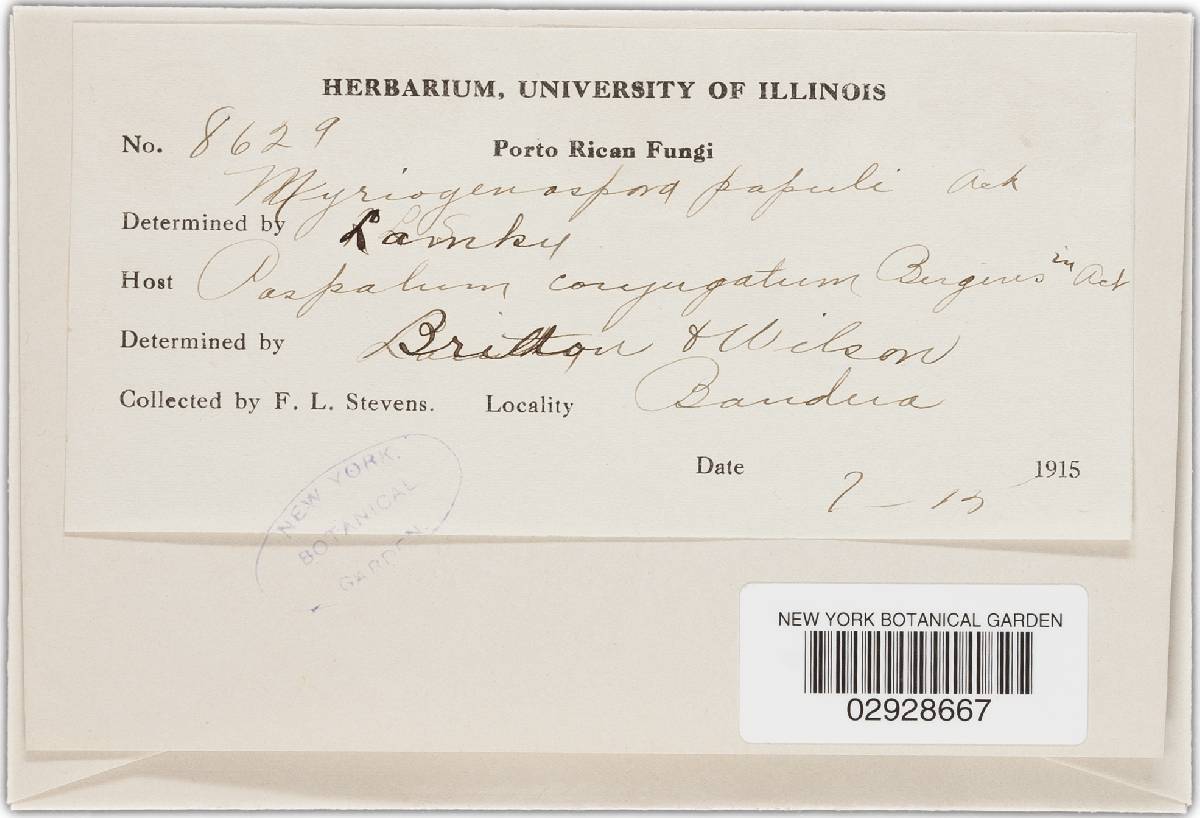 HERBARIUM, UNIVERSITY OF ILLINOIS
No. 8629
Porto Rican Fungi
Myriogenospora
Determined by Lamkey
Host Paspalum conjugatum Bergius in
Determined by Britton & Wilson
Collected by F. L. Stevens. Locality
Date 7-15 1915
NEW YORK
BOTANICAL
GARDEN.
NEW YORK BOTANICAL GARDEN
02928667